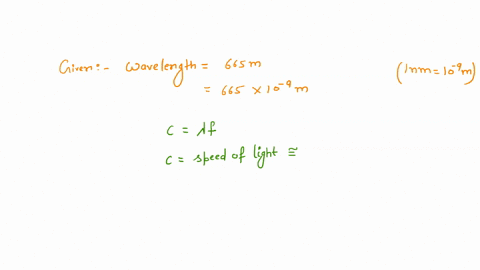 Given:- Wavelength = 665 m (1nm = 10⁻⁹ m)
= 665 × 10⁻⁹ m
C = λf
C = speed of light ≅